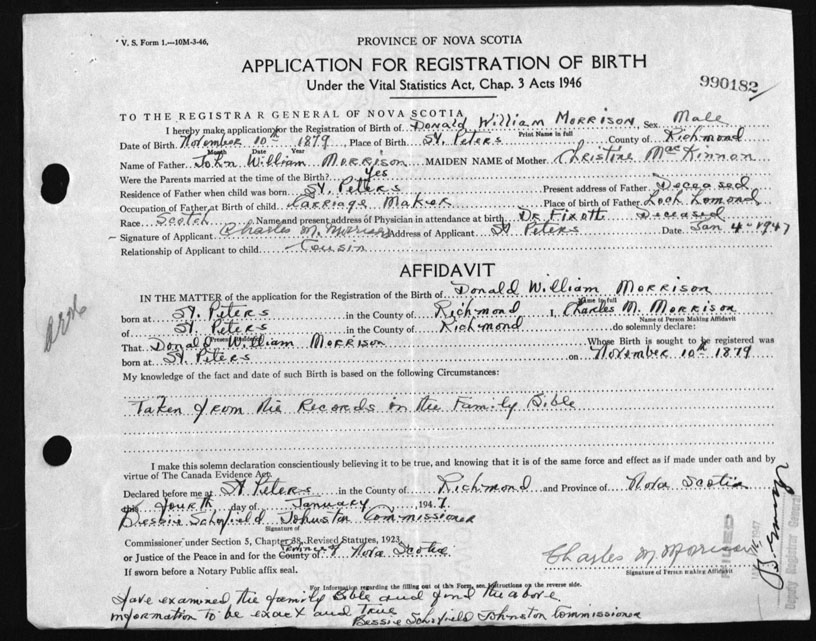 V. S. Form 1.—10M-3-46.
PROVINCE OF NOVA SCOTIA
APPLICATION FOR REGISTRATION OF BIRTH
Under the Vital Statistics Act, Chap. 3 Acts 1946
990182
TO THE REGISTRAR GENERAL OF NOVA SCOTIA
I hereby make application for the Registration of Birth of Donald William Morrison, Sex Male
Print Name in full
Date of Birth November 10th 1879, Place of Birth St. Peters County of Richmond
Month Date Year
Name of Father John William Morrison MAIDEN NAME of Mother Christine MacKinnon
Were the Parents married at the time of the Birth? Yes
Residence of Father when child was born St Peters Present address of Father Deceased
Occupation of Father at Birth of child Carriage Maker Place of birth of Father Loch Lomond
Race Scotch Name and present address of Physician in attendance at birth Dr Fixott Deceased
Signature of Applicant Charles M. Morrison Address of Applicant St Peters Date Jan 4-1947
Relationship of Applicant to child Cousin
AFFIDAVIT
IN THE MATTER of the application for the Registration of Birth of Donald William Morrison
Name in full
born at St. Peters in the County of Richmond I, Charles M. Morrison
Name of Person Making Affidavit
of St. Peters in the County of Richmond do solemnly declare:
Present Address
That Donald William Morrison Whose Birth is sought to be registered was
born at St. Peters on November 10th 1879
My knowledge of the fact and date of such Birth is based on the following Circumstances:
Taken from the Records in the Family Bible
I make this solemn declaration conscientiously believing it to be true, and knowing that it is of the same force and effect as if made under oath and by
virtue of The Canada Evidence Act.
Declared before me at St Peters in the County of Richmond and Province of Nova Scotia
this fourth day of January 1947
Bessie Schofield Johnston Commissioner
Signature of
Commissioner under Section 5, Chapter 38, Revised Statutes, 1923,
or Justice of the Peace in and for the County of Province of Nova Scotia
If sworn before a Notary Public affix seal.
Charles M Morrison
Signature of Person making Affidavit
Deputy Registrar General
For Information regarding the filling out of this Form, see Instructions on the reverse side.
I have examined the family Bible and find the above
information to be exact and true
Bessie Schofield Johnston Commissioner